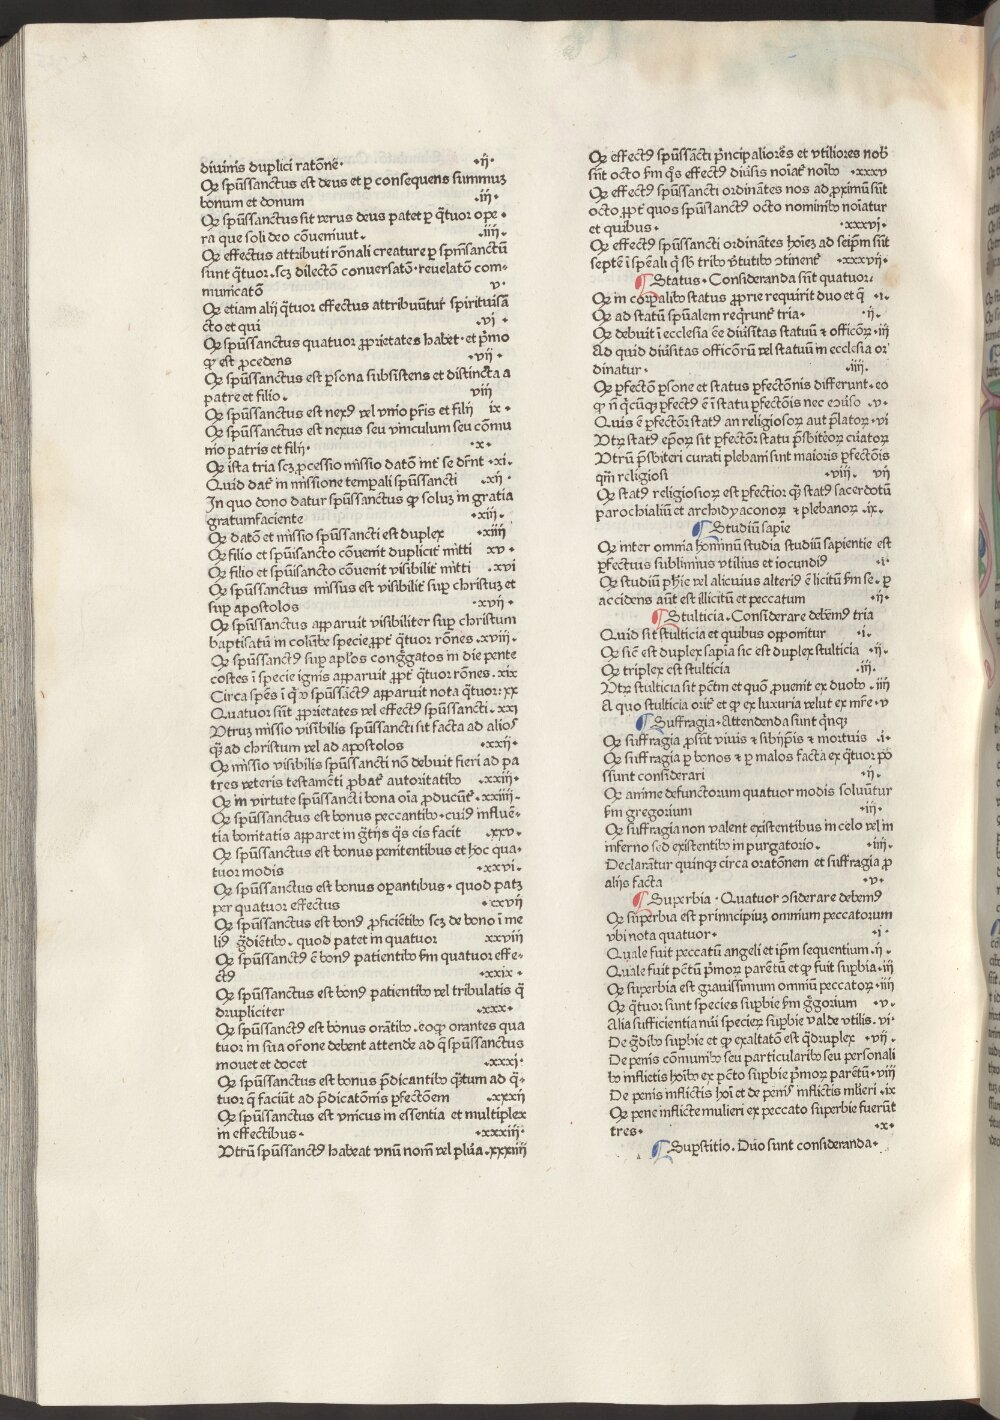 diuinis duplici ratōne· ·ij·
Qꝫ spūssanctus est deus et ꝑ consequens summuꝫ
bonum et donum ·iij·
Qꝫ spūssanctus sit verus deus patet ꝑ q̈tuor ope ·
ra que soli deo cōueniuut. ·iiij·
Qꝫ effectus attributi rōnali creature ꝑ spm̄sanctū
sunt q̈tuor· scꝫ dilectō conuersatō· reuelatō com-
municatō v·
Qꝫ etiam alij q̈tuor effectus attribuūtur̄ spirituisā
cto et qui ·vi ·
Qꝫ spūssanctus quatuor ꝓprietates habet̄· et pͥmo
qꝙ est ꝓcedens ·vij ·
Qꝫ spūssanctus est ꝑsona subsistens et distincta a
patre et filio. viij
Qꝫ spūssanctus est nexꝰ vel vnio pr̄is et filij ix ·
Qꝫ spūssanctus est nexus seu vinculum seu cōmu
nio patris et filij· ·x·
Qꝫ ista tria scꝫ ꝓcessio missio datō int̄ se dr̄nt ·xi·
Quid dat̄ in missione temꝑali spūssancti .xij ·
In quo dono datur spūssanctus ꝙ soluꝫ in gratia
gratumfaciente ·xiij·
Qꝫ datō et missio spūssancti est duplex ·xiiij
Qꝫ filio et spūisancto cōuenit duplicit̄ mitti xv ·
Qꝫ filio et spūisancto cōuenit visibilit̄ mitti .xvi
Qꝫ spūssanctus missus est visibilit̄ suꝑ christuꝫ et
suꝑ apostolos ·xvij ·
Qꝫ spūssanctus apparuit visibiliter suꝑ christum
baptisatū in colūbe specie ꝓpt̄ q̈tuor rōnes .xviij.
Qꝫ spūssanctꝰ suꝑ apl̄os congg̈atos in die pente
costes ī specie ignis apparuit ꝓpt̄ q̈tuor rōnes. xix
Circa spēs ī qͥ v spūssāctꝰ apparuit nota q̈tuor: xx
Quatuor sūt ꝓprietates vel effectꝰ spūssancti. xxi
Vtruꝫ missio visibilis spūssancti sit facta ad alios
qꝫ ad christum vel ad apostolos ·xxij ·
Qꝫ missio visibilis spūssancti nō debuit fieri ad pa
tres veteris testamēti ꝓbat̄ autoritatibꝰ .xxiij·
Qꝫ in virtute spūssancti bona oīa ꝓducūt̄ .xxiiij·
Qꝫ spūssanctus est bonus peccantibꝰ · cuiꝰ influē-
tia bonitatis apparet in g̈tijs q̄s eis facit .xxv·
Qꝫ spūssanctus est bonus penitentibus et hoc qua·
tuor modis ·xxvi·
Qꝫ spūssanctus est bonus oꝑantibus · quod patꝫ
per quatuor effectus ·xxvij
Qꝫ spūssanctus est bonꝰ ꝓficiētibꝰ scꝫ de bono ī me
liꝰ g̈diētibꝰ . quod patet in quatuor xxviij
Qꝫ spūssanctꝰ ē bonꝰ patientibꝰ ẜm quatuor effe-
ctꝰ ·xxix ·
Qꝫ spūssanctus est bonꝰ patientibꝰ vel tribulatis q̄
drupliciter ·xxx·
Qꝫ spūssanctꝰ est bonus orātibꝰ .eoqꝙ orantes qua
tuor in sua or̄one debent attende ad q̄ spūssanctus
mouet et docet ·xxxi·
Qꝫ spūssanctus est bonus p̄dicantibꝰ q̄tum ad q̈-
tuor q̄ faciūt ad p̄dicatōnis ꝑfectōem ·xxxij
Qꝫ spūssanctus est vnicus in essentia et multiplex
in effectibus· ·xxxiij·
Vtrū spūssanctꝰ habeat vnū nom̄ vel plu̅a .xxxiiij
Qꝫ effectꝰ spūssācti pͥncipaliores et vtiliores nob̄
sūt octo ẜm qͣs effectꝰ diuͥsis noīat̄ noībꝰ ·xxxv
Qꝫ effectꝰ spūssancti ordinātes nos ad ꝓximū sūt
octo ꝓpt̄ quos spūssanctꝰ octo nominibꝰ noīatur
et quibus· ·xxxvi·
Qꝫ effectꝰ spūssancti ordinātes hoīeꝫ ad seip̄m sūt
septē ī spēali q̄ sb̄ tribꝰ v̄tutibꝰ ↄtinent̄ ·xxxvij·
¶ Status · Consideranda sūt quatuor·
Qꝫ in corꝑalibꝰ status ꝓprie requirit duo et q̄ ·i·
Qꝫ ad statū spūalem reqͥrunt̄ tria· ·ij·
Qꝫ debuit ī ecclesia ēe diūsitas statuū ⁊ officoꝝ ·iij
Ad quid diūsitas officōrū vel statuū in ecclesia or
dinatur· .iiij.
Qꝫ ꝑfectō ꝑsone et status ꝑfectōnis differunt· eo
qꝙ n̄ qͥcūqꝫ ꝑfectꝰ ē ī statu ꝑfectōis nec ecōuͥso ·v·
Quis ē ꝑfectōr statꝰ an religiosoꝝ aut p̄latoꝝ ·vi
Vtꝝ statꝰ ep̄oꝝ sit ꝑfectōr statu p̄sbiteroꝝ cūatoꝝ
Vtrū p̄sbiteri curati plebani sunt maioris ꝑfectōis
qm̄ religiosi ·viij. vij
Qꝫ statꝰ religiosoꝝ est ꝑfectioꝝ qꝫ statꝰ sacerdotū
parochialiū et archidyaconoꝝ ⁊ plebanoꝝ .ix.
¶ Studiū sapīe
Qꝫ inter omnia hominū studia studiū sapientie est
ꝑfectius sublimius vtilius et iocundiꝰ ·i·
Qꝫ studiū ph̄ie vel alicuius alteriꝰ ē licitū ẜm se. ꝑ
accidens aūt est illicitū et peccatum ·ij·
¶ Stulticia . Considerare debemꝰ tria
Quid sit stulticia et quibus opponitur ·i·
Qꝫ sic̄ est duplex sapīa sic est duplex stulticia ·ij·
Qꝫ triplex est stulticia .iij.
Vtꝝ stulticia sit pctm̄ et quō ꝓuenit ex duobꝰ . iiij
A quo stulticia orit̄ et qꝙ ex luxuria velut ex mr̄e·v
¶ Suffragia · Attendenda sunt qͥnqꝫ
Qꝫ suffragia ꝓsūt viuis ⁊ sibijp̄is ⁊ mortuis .i·
Qꝫ suffragia ꝑ bonos ⁊ ꝑ malos facta ex q̈tuor pō
ssunt considerari ·ij·
Qꝫ anime defunctorum quatuor modis soluūtur
ẜm gregorium ·iij·
Qꝫ suffragia non valent existentibus in celo vel in
inferno sed existentibꝰ in purgatorio. ·iiij.
Declarātur quinqꝫ circa oratōnem et suffragia ꝓ
alijs facta ·v·
¶ Superbia · Quatuor ↄsiderare debemꝰ
Qꝫ superbia est prinncipiuꝫ omnium peccatorum
vbi nota quatuor· ·i·
Quale fuit peccatū angeli et ip̄m sequentium .ij·
Quale fuit pctūm pͥmoꝝ parētū et qꝙ fuit suꝑbia·iij
Qꝫ superbia est grauissimum omniū peccatoꝝ ·iiij
Qꝫ q̈tuor sunt species suꝑbie ẜm gg̈orium ·v·
Alia sufficientia nūi specieꝝ suꝑbie valde vtilis. vi·
De g̈dibꝰ suꝑbie et qꝙ exaltatō est q̈druplex ·vij ·
De penis cōmunibꝰ seu particularibꝰ seu personali
bꝰ inflictis hoībꝰ ex pctō suꝑbie pͥmoꝝ parētū·viij
De penis inflictis hoī et de penis inflictis ml̄ieri .ix
Qꝫ pene inflicte mulieri ex peccato superbie fuerūt
tres· ·x·
¶ Suꝑstitio . Duo sunt consideranda·